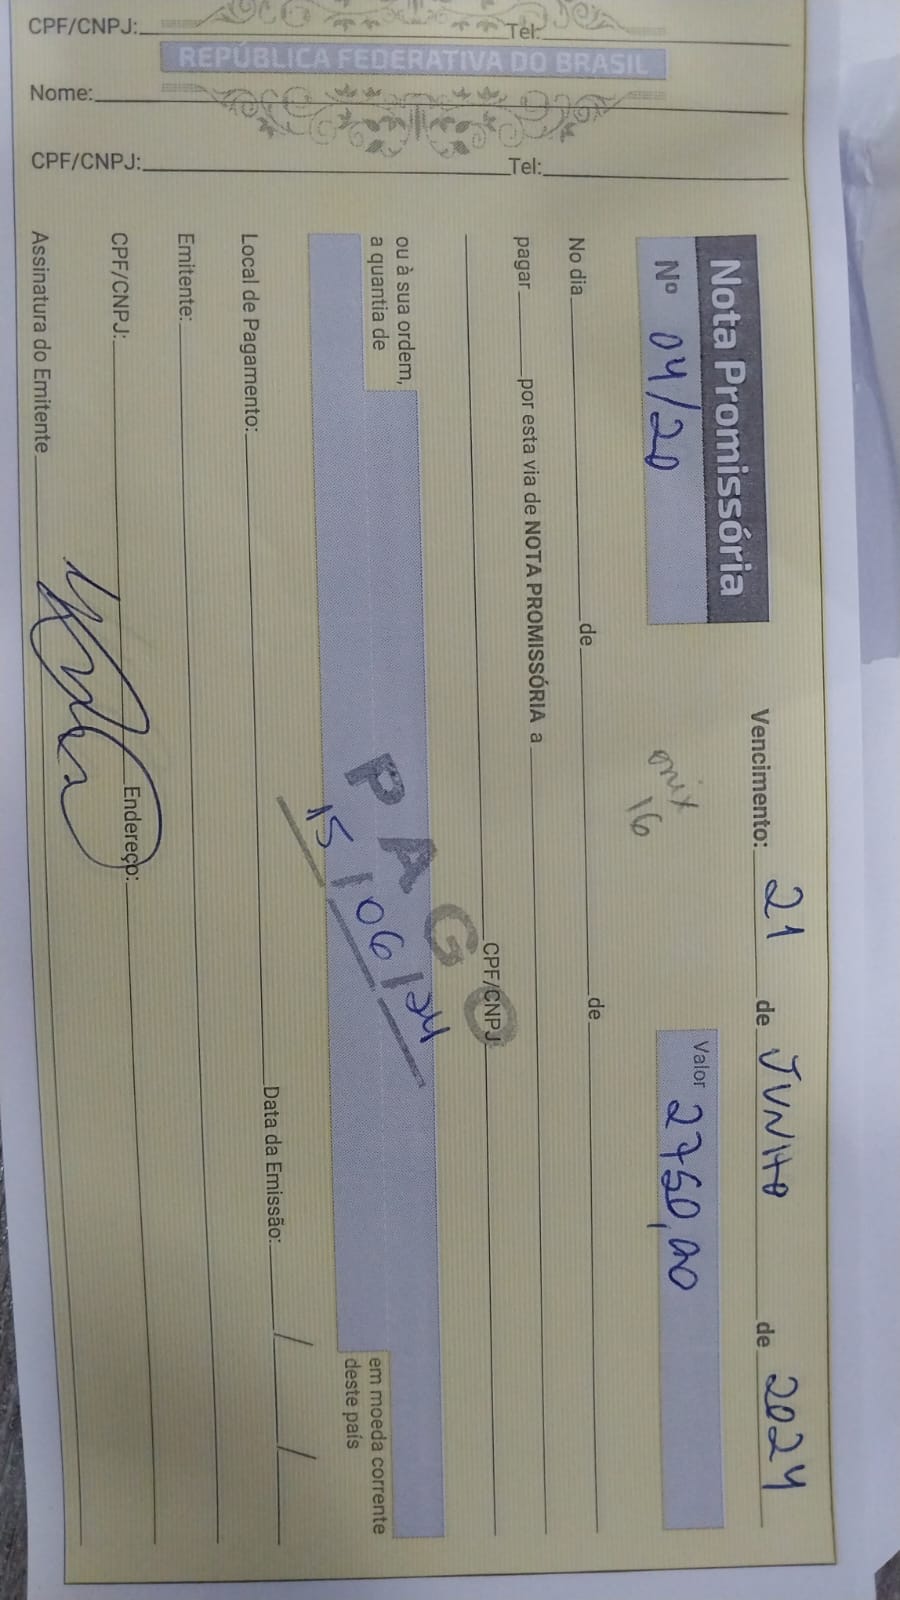 CPF/CNPJ: Tel:
REPÚBLICA FEDERATIVA DO BRASIL
Nome:
CPF/CNPJ: Tel:
Nota Promissória
Vencimento: 21 de JUNHO de 2024
Nº 04/20
onix
16
Valor 2750,00
No dia de de
pagar por esta via de NOTA PROMISSÓRIA a
CPF/CNPJ
ou à sua ordem,
a quantia de
em moeda corrente
deste país
PAGO
15/06/24
Local de Pagamento: Data da Emissão: / /
Emitente:
CPF/CNPJ: Endereço:
Assinatura do Emitente